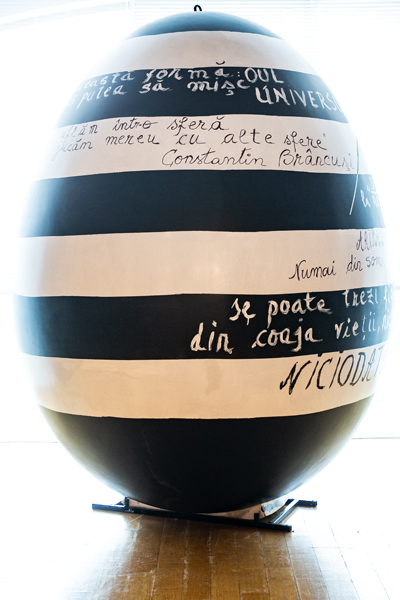 formă: OUL
putea să mișc
UNIVERS
într-o sferă
mereu cu alte sfere
Constantin Brâncuși
Numai din
se poate trezi
din coaja vieții,
NICIODAT